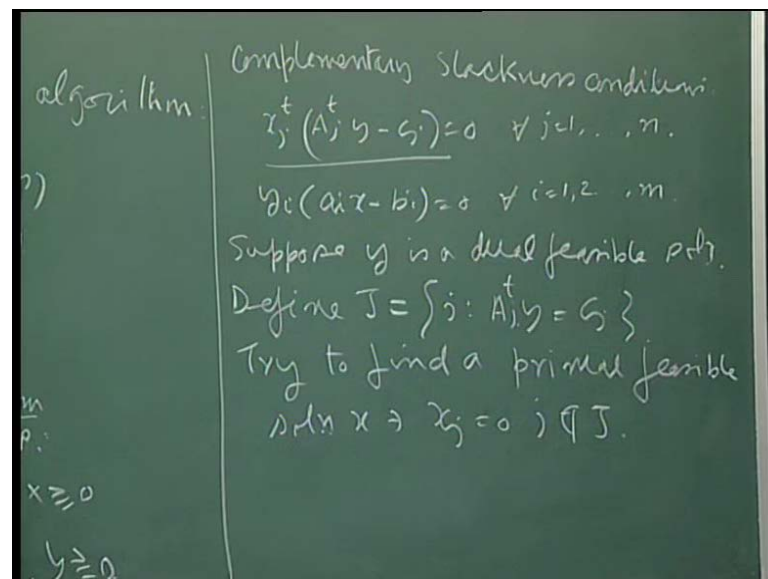 algorithm:
P)
m
P:
x ≥ 0
y ≥ 0
Complementary slackness conditions.
x_j^t (A_j^t y - c_j) = 0 ∀ j=1, . . . , n.
y_i (a_i x - b_i) = 0 ∀ i=1,2 , m.
Suppose y is a dual feasible soln.
Define J = {j : A_j^t y = c_j}
Try to find a primal feasible
soln x ∋ x_j = 0 j ∉ J.